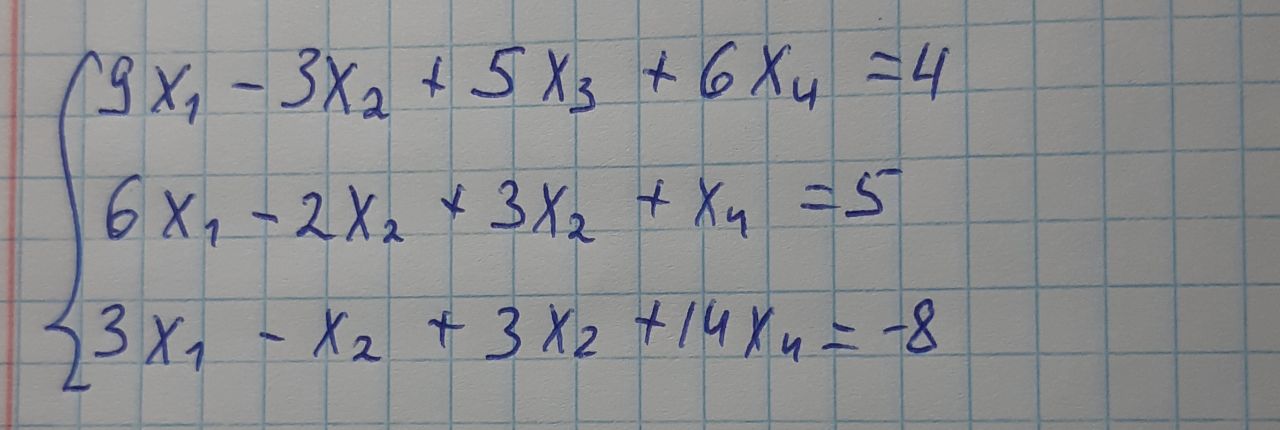 9x₁ - 3x₂ + 5x₃ + 6x₄ = 4
6x₁ - 2x₂ + 3x₂ + x₄ = 5
3x₁ - x₂ + 3x₂ + 14x₄ = -8